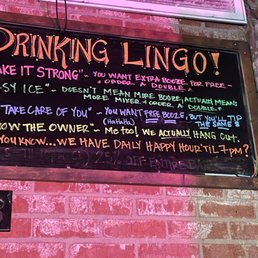 DRINKING LINGO!
AKE IT STRONG" - YOU WANT EXTRA BOOZE FOR FREE -
* ORDER A DOUBLE *
SY ICE" - DOESN'T MEAN MORE BOOZE, ACTUALLY MEANS
MORE MIXER * ORDER A DOUBLE *
TAKE CARE OF YOU" - YOU WANT FREE BOOZE, BUT YOU'LL TIP
(HaHaHa) THE SAME $
NOW THE OWNER" - Me too! WE ACTUALLY HANG OUT
YOU KNOW... WE HAVE DAILY HAPPY HOUR 'TIL 7pm?